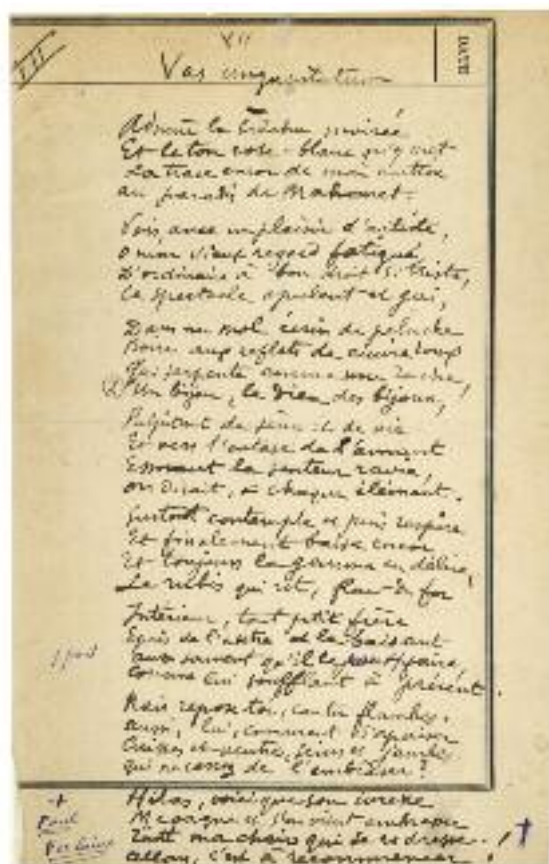 III
VII
DATE
Vas unguentatum
Admire la brèche moirée
Et le ton rose-blanc qu'y met
La trace encor de mon entrée
au paradis de Mahomet.
Vois, avec un plaisir d'artiste,
O mon vieux regard fatigué
D'ordinaire à bon droit si triste,
Ce spectacle opulent et gai,
Dans un mol écrin de peluche
Noire aux reflets de cuivre roux
Qui serpente comme une ruche,
Un bijou, le dieu des bijoux,
Palpitant de sève et de vie
Et vers l'extase de l'amant
Essorant la senteur ravie,
On dirait, à chaque élément.
Surtout contemple et puis respire
Et finalement baise encor
Et toujours la gemme en délire,
Le rubis qui rit, fleur du for
Intérieur, tout petit frère
Epris de l'autre et le baisant
aussi souvent qu'il le
Comme lui soufflant à présent.
Mais repose-toi, car tu flambes.
aussi, lui, comment s'apaiser
Cuisses et ventre, seins et jambes
qui ne cessez de l'embraser?
Hélas, voici que son ivresse
Me gagne et s'en vient embraser
Toute ma chair qui se redresse.
allons, c'est à recommencer
Paul
Verlaine